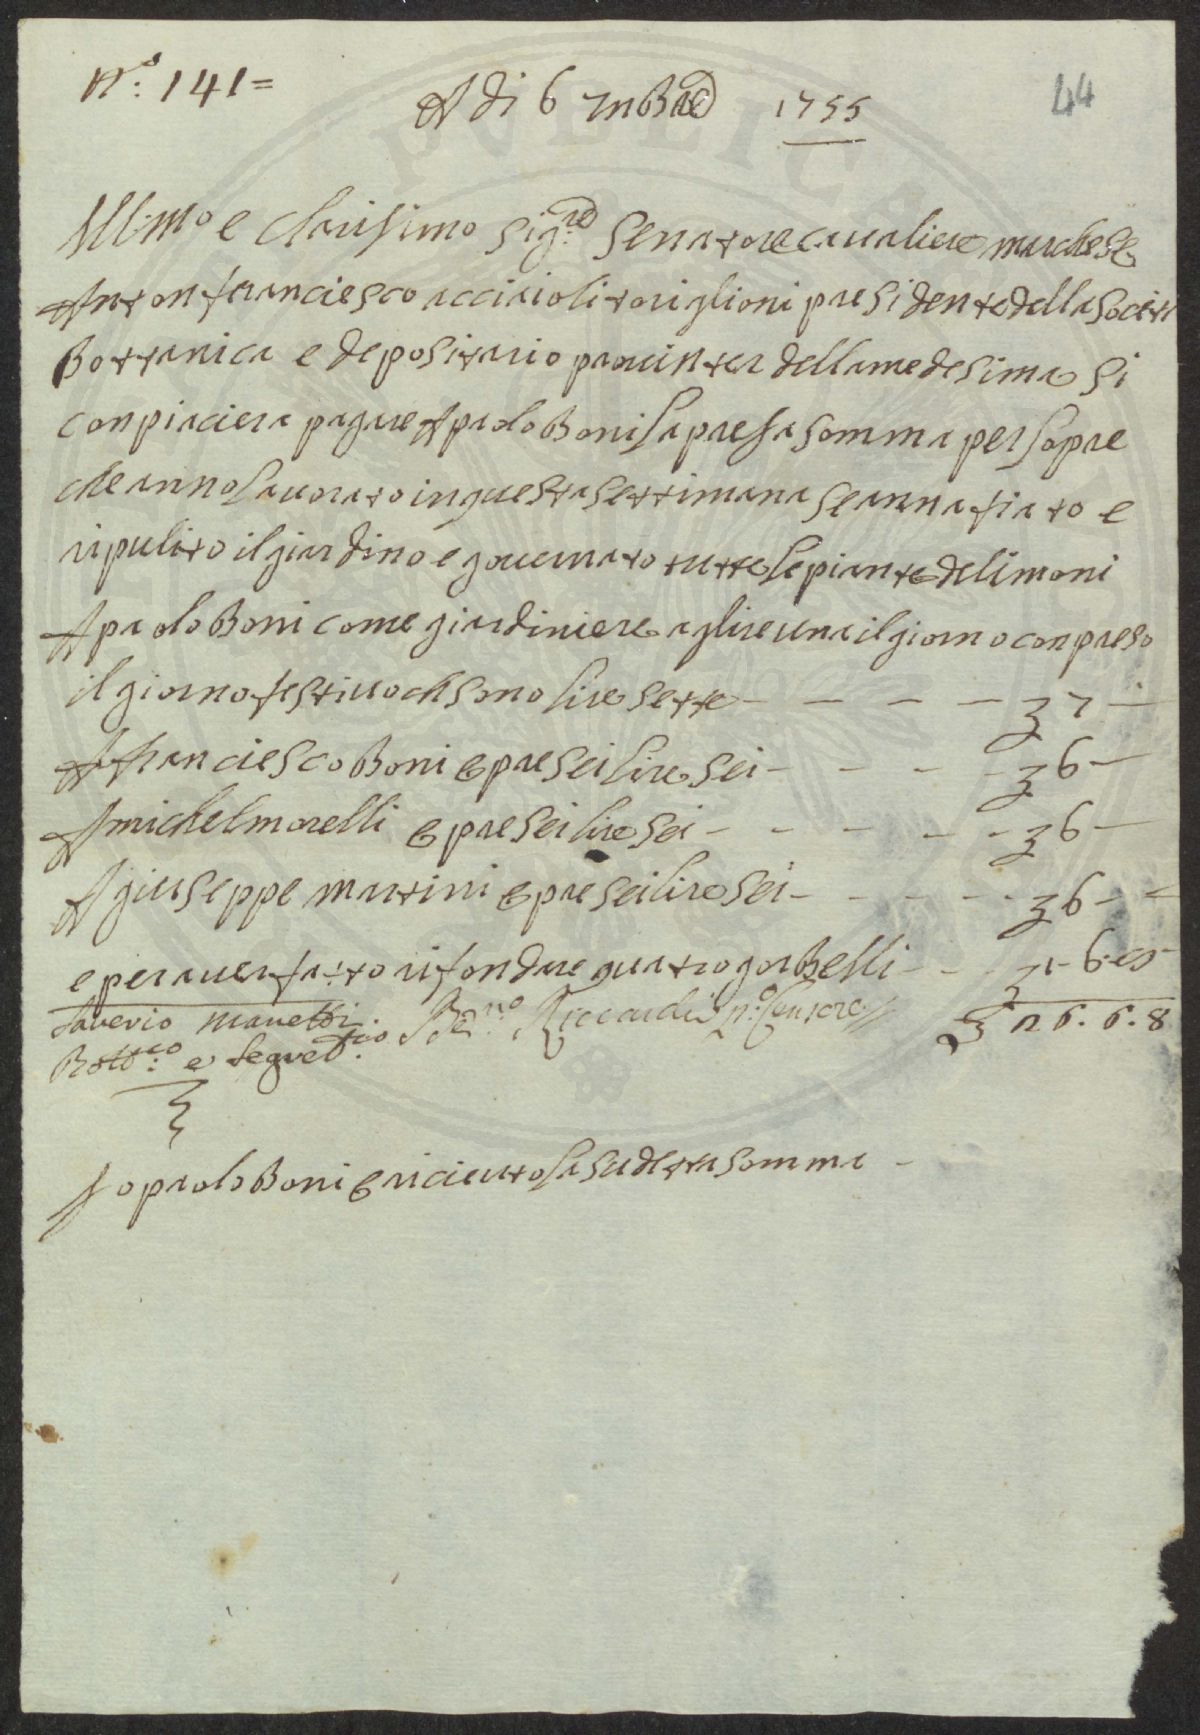 N.° 141=
A di 6 7nbre 1755
44
Ill.mo e Clarisimo Sig.re Senatore cavaliere marchese
Antonfranciesco acciaioli toriglioni presidente della Società
Bottanica e depositario provinter della medesima si
conpiaciera pagare A paolo Boni la presa somma per lopre
che anno lavorato in questa settimana se annafiato e
ripulito il giardino e governato tutte le piante de limoni
A paolo Boni come giardiniere a gli re una il giorno conpreso
il giorno festivo che sono lire sette - - - - 7 -
A franciesco Boni e pre sei lire sei - - - - 6 -
A michel morelli e pre sei lire sei - - - - - 6 -
A giuseppe martini e pre sei lire sei - - - - - 6 - -
e per aver fatto rifondare quatro gorbelli - - 1 - 6 - 8
Saverio Manetti Ber.no Riccardi p.o Censore 26. 6. 8
Bott.co e Segret.rio
Io paolo Boni e riceuto la sudetta somma -
PVBLICA